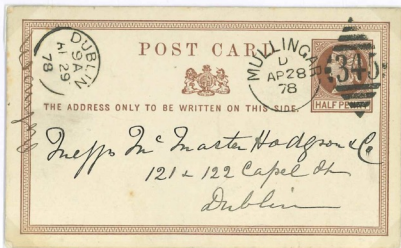 POST CARD
DUBLIN
9A
29
78
MULLINGAR
D
AP 28
78
345
HALF PE
THE ADDRESS ONLY TO BE WRITTEN ON THIS SIDE.
Messrs McMaster Hodgson & Co
121 & 122 Capel St
Dublin